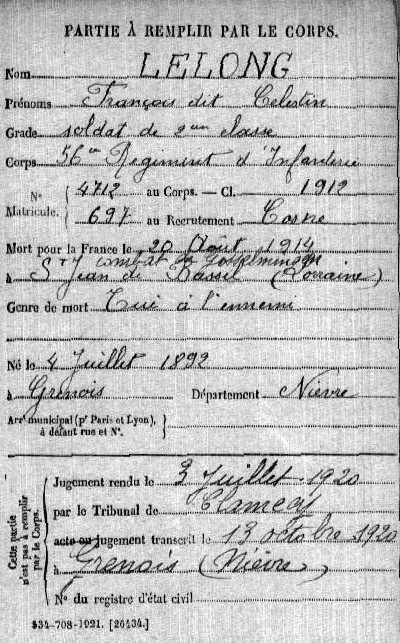 PARTIE À REMPLIR PAR LE CORPS.
Nom LELONG
Prénoms François dit Celestin
Grade soldat de 2eme classe
Corps 56e Regiment d'Infanterie
N° Matricule. { 4712 au Corps. — Cl. 1912
697 au Recrutement Cosne
Mort pour la France le 20 Août 1914
combat de Gosselmingen
à St Jean de Bassel (Lorraine)
Genre de mort Tué à l'ennemi
Né le 4 Juillet 1892
à Grenois Département Nièvre
Arrt municipal (pr Paris et Lyon), à défaut rue et N°. }
Cette partie n'est pas à remplir par le Corps.
Jugement rendu le 3 Juillet 1920
par le Tribunal de Clamecy
acte ou jugement transcrit le 13 octobre 1920
à Grenois (Nièvre)
N° du registre d'état civil
534-708-1921. [26434.]